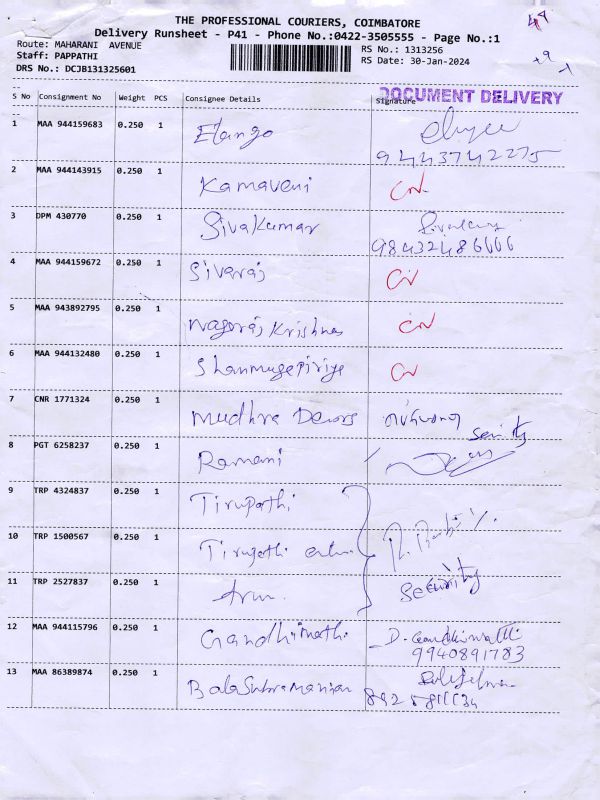 THE PROFESSIONAL COURIERS, COIMBATORE
Delivery Runsheet - P41 - Phone No.:0422-3505555 - Page No.:1
Route: MAHARANI AVENUE
Staff: PAPPATHI
DRS No.: DCJB131325601
RS No.: 1313256
RS Date: 30-Jan-2024
DOCUMENT DELIVERY
S No Consignment No Weight PCS Consignee Details Signature
1 MAA 944159683 0.250 1 Elango
9443742275
2 MAA 944143915 0.250 1 Kamaveni CN
3 DPM 430770 0.250 1 SivaKumar
98432486666
4 MAA 944159672 0.250 1 Sivaraj CN
5 MAA 943892795 0.250 1 Nagaraj Krishnas CN
6 MAA 944132480 0.250 1 Shanmugapiriya CN
7 CNR 1771324 0.250 1 Mudhra Decors
8 PGT 6258237 0.250 1 Ramani
9 TRP 4324837 0.250 1 Tirupathi
10 TRP 1500567 0.250 1 Tirupathi
11 TRP 2527837 0.250 1 Arun security
12 MAA 944115796 0.250 1 Gandhimathi D. Gandhimathi
9940891783
13 MAA 86389874 0.250 1 BalaSubramanian